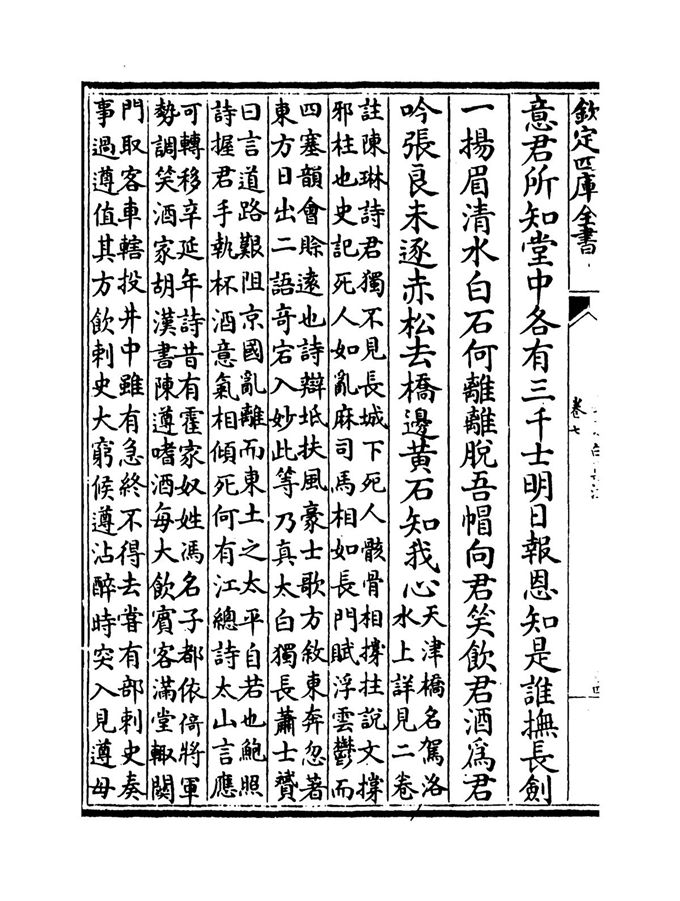 欽定四庫全書
卷七
意君所知堂中各有三千士明日報恩知是誰撫長劍
一揚眉清水白石何離離脫吾帽向君笑飲君酒爲君
吟張良未逐赤松去橋邊黃石知我心
天津橋名駕洛
水上詳見二卷
註陳琳詩君獨不見長城下死人骸骨相撐拄說文撐
邪柱也史記死人如亂麻司馬相如長門賦浮雲鬱而
四塞韻會賒遠也詩辯坻扶風豪士歌方敘東奔忽著
東方日出二語奇宕入妙此等乃真太白獨長蕭士贇
曰言道路艱阻京國亂離而東土之太平自若也鮑照
詩握君手執杯酒意氣相傾死何有江總詩太山言應
可轉移辛延年詩昔有霍家奴姓馮名子都依倚將軍
勢調笑酒家胡漢書陳遵嗜酒每大飲賓客滿堂輙關
門取客車轄投井中雖有急終不得去嘗有部刺史奏
事過遵值其方飲刺史大窮候遵沾醉時突入見遵母